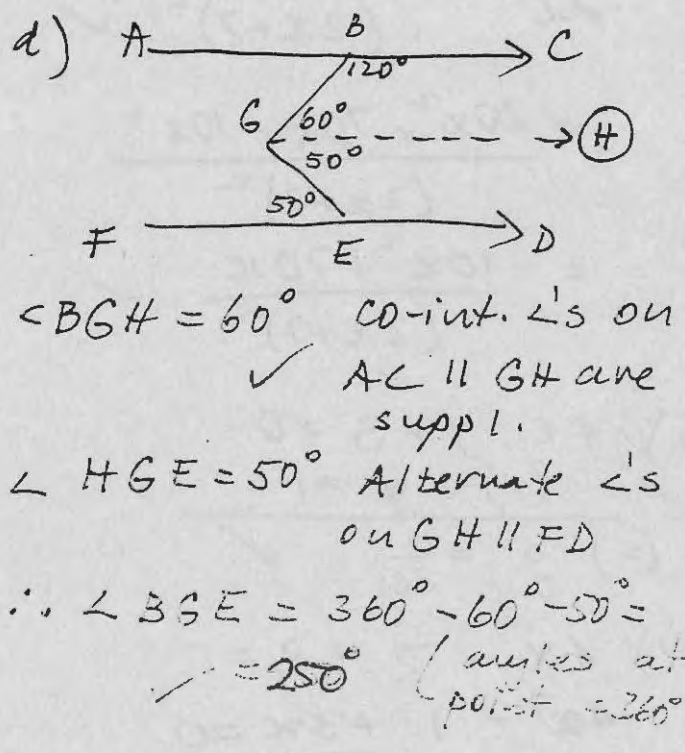 d) A B C
120°
G 60° H
50°
50°
F E D
<BGH = 60° co-int. <'s on
✓ AC || GH are
suppl.
∠ HGE = 50° Alternate <'s
on GH || FD
∴ ∠ BGE = 360° - 60° - 50° =
= 250° (angles at
point = 360°